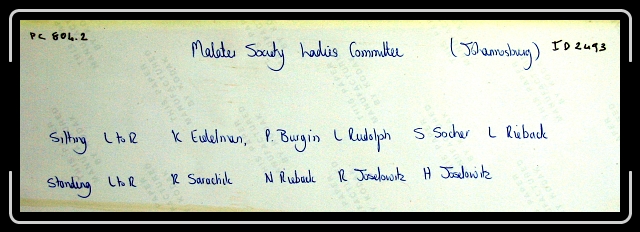 PC 804.2
Malater Society Ladies Committee (Johannesburg) ID2493
Sitting L to R K Eidelman, P. Burgin L Rudolph S Socher L Rieback
Standing L to R R Sarachik N Rieback R Joselowitz H Joselowitz